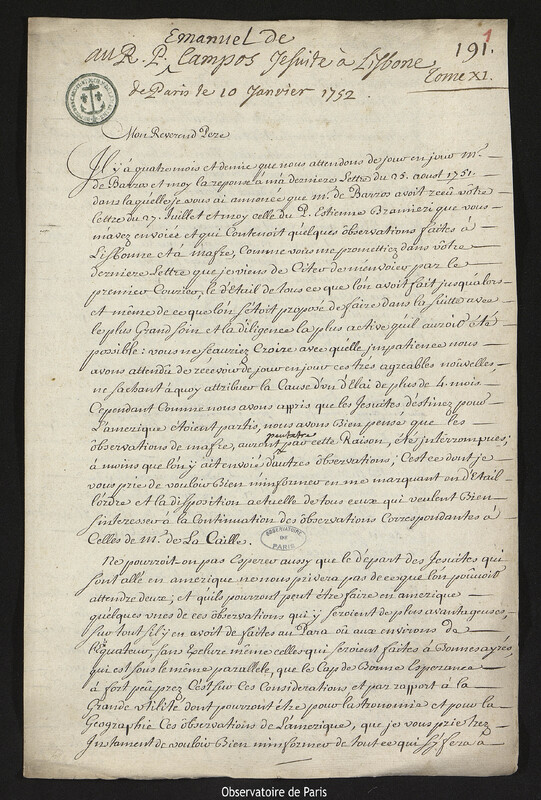 Emanuel de
au R. P. Campos Jesuite à Lisbone
191.
1
Tome XI.
de Paris le 10 Janvier 1752
Mon Reverend Pere
Il y a quatre mois et demie que nous attendons de jour en jour Mr.
de Barro et moy la reponse à ma derniere Lettre du 25. aoust 1751.
dans laquelle je vous ai annoncé que Mr. de Barros avoit receû vôtre
Lettre du 27. Juillet et moy celle du P. Estienne Bramieri que vous
m'avez envoiée et qui Contenoit quelques observations faites à
Lisbonne et à mafra, Comme vous me promettiez dans vôtre
derniere Lettre que je viens de Citer de m'envoier par le
premier Courier, le d'Etail de tous ce que lon avoit fait jusqu'alors
et même de ce que lon s'étoit proposé de faire dans la suitte avec
le plus Grand soin et la diligence la plus active quil auroit été
possible: vous ne sçauriez Croire avec quelle impatience nous
avons attendu de recevoir de jour en jour ces trés agreables nouvelles,
ne sachant à quoy attribuer la Cause d'un d'Elai de plus de 4 mois.
Cependant Comme nous avons appris que les Jesuites destinez pour
L'amerique étoient partis, nous avons Bien pensé que les
observations de mafra, auront peutetre par cette Raison, été interrompues;
à moins que lon y ait envoié d'autres observations; C'est ce dont je
vous prie de vouloir Bien m'informer en me marquant en d'Etail
lordre et la disposition actuelle de tous ceux qui veulent Bien
sinteresser à la Continuation des observations Correspondantes à
Celles de Mr. de La Caille.
OBSERVATOIRE
DE
PARIS
Ne pourroit-on pas Esperer aussy que le départ des Jesuites qui
sont allé en amerique ne nous privera pas de ce que lon pouvoit
attendre deux; et quils pourront peut être faire en amerique
quelques unes de ces observations qui y seroient de plus avantageuses,
sur tout s'il y en avoit de faites au Para où aux environs de
l'Equateur, sans Exclure même celles qui seroient faites à Bonnes ayres,
qui est sous le même parallele, que le Cap de Bonne Esperance
à fort peu prez C'est sur Ces Considerations et par rapport à la
Grande utilité dont pourroient être pour lastronomie et pour la
Geographie Ces observations de L'amerique, que je vous prie trez
Instament de vouloir Bien m'informer de tout ce qui s'y fera à
Observatoire de Paris